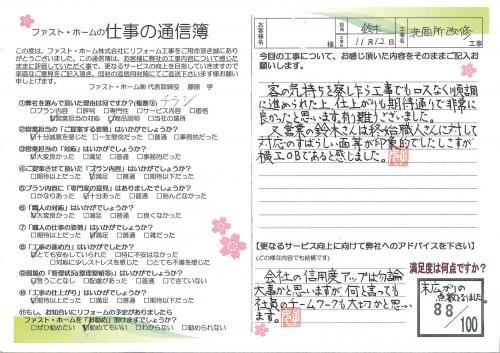 ファスト・ホームの 仕事の通信簿
この度は、ファスト・ホーム株式会社にリフォーム工事をご用命頂き誠にあり
がとうございました。この通信簿は、お客様に弊社の工事内容について感じた
ままに評価していただく事で、更なるサービスの向上を目指していきますので
率直なご意見をご記入頂き、同封の返信用封筒にてご返送下さいます様お願い
申し上げます。
ファスト・ホーム㈱ 代表取締役
①弊社を選んで頂いた理由は何ですか?(複数可) チラシ
□プラン内容 □評判 □専門性 □サービス内容 □価格
□営業担当の対応 □商品説明 □会社の場所
②営業担当の「ご提案する姿勢」はいかがでしたか?
□十分誠意を感じた □一生懸命だった □普通 □事務的だった
③営業担当の「対応」はいかがでしたか?
□大変良かった □満足 □普通 □事務的だった
④ご提案させて頂いた「プラン」はいかがでしたか?
□期待以上だった □満足 □普通 □期待以下だった
⑤プラン内容に「専門家の意見」はありましたでしょうか?
□かなりあった □十分あった □普通 □殆んどなかった
⑥「職人の対応」はいかがでしたでしょうか?
□大変良かった □満足 □普通 □良くなかった
⑦「職人の仕事の姿勢」はいかがでしたか?
□期待以上だった □満足 □普通 □期待以下
⑧「工事の進め方」はいかがでしたでしょうか?
□とても安心していられた □特に不安はなかった
□対応に少しストレスを感じた □とても不安を感じた
⑨現場の「管理状況(整理整頓等)」はいかがでしたでしょうか?
□言うことなし □配慮があった □普通 □できていなかった
⑩「工事の仕上がり」はいかがでしたでしょうか?
□期待以上だった □満足 □普通 □期待以下
⑪もし、お知合いにリフォームの予定がありましたら
ファスト・ホームを「お勧め」頂けますでしょうか?
□ぜひ勧めたい □勧めてもいい □わからない □勧められない
お客様名 様 担当 鈴木 11月12日 工事名 洗面所改修 工事
今回の工事について、お感じ頂いた内容をそのままご記入お
願いします。
客の気持ちを察した行う工事でもロスなく順調
に進められた上、仕上がりも期待通りで非常に
良かったと思います。有難うございました。
又営業の鈴木さんは終始職人さんに対して
対応のすばらしい面等が印象的でしたしさすが
横工OBであると感じました。
【更なるサービス向上に向けて弊社へのアドバイスを下さい】
(どの様な内容でも結構です)
会社の信用度アップは勿論
大事かと思いますが何と言っても
社員のチームワークも大切かと思い
ます。
満足度は何点ですか?
末広がりの
点数となりました。
88/100